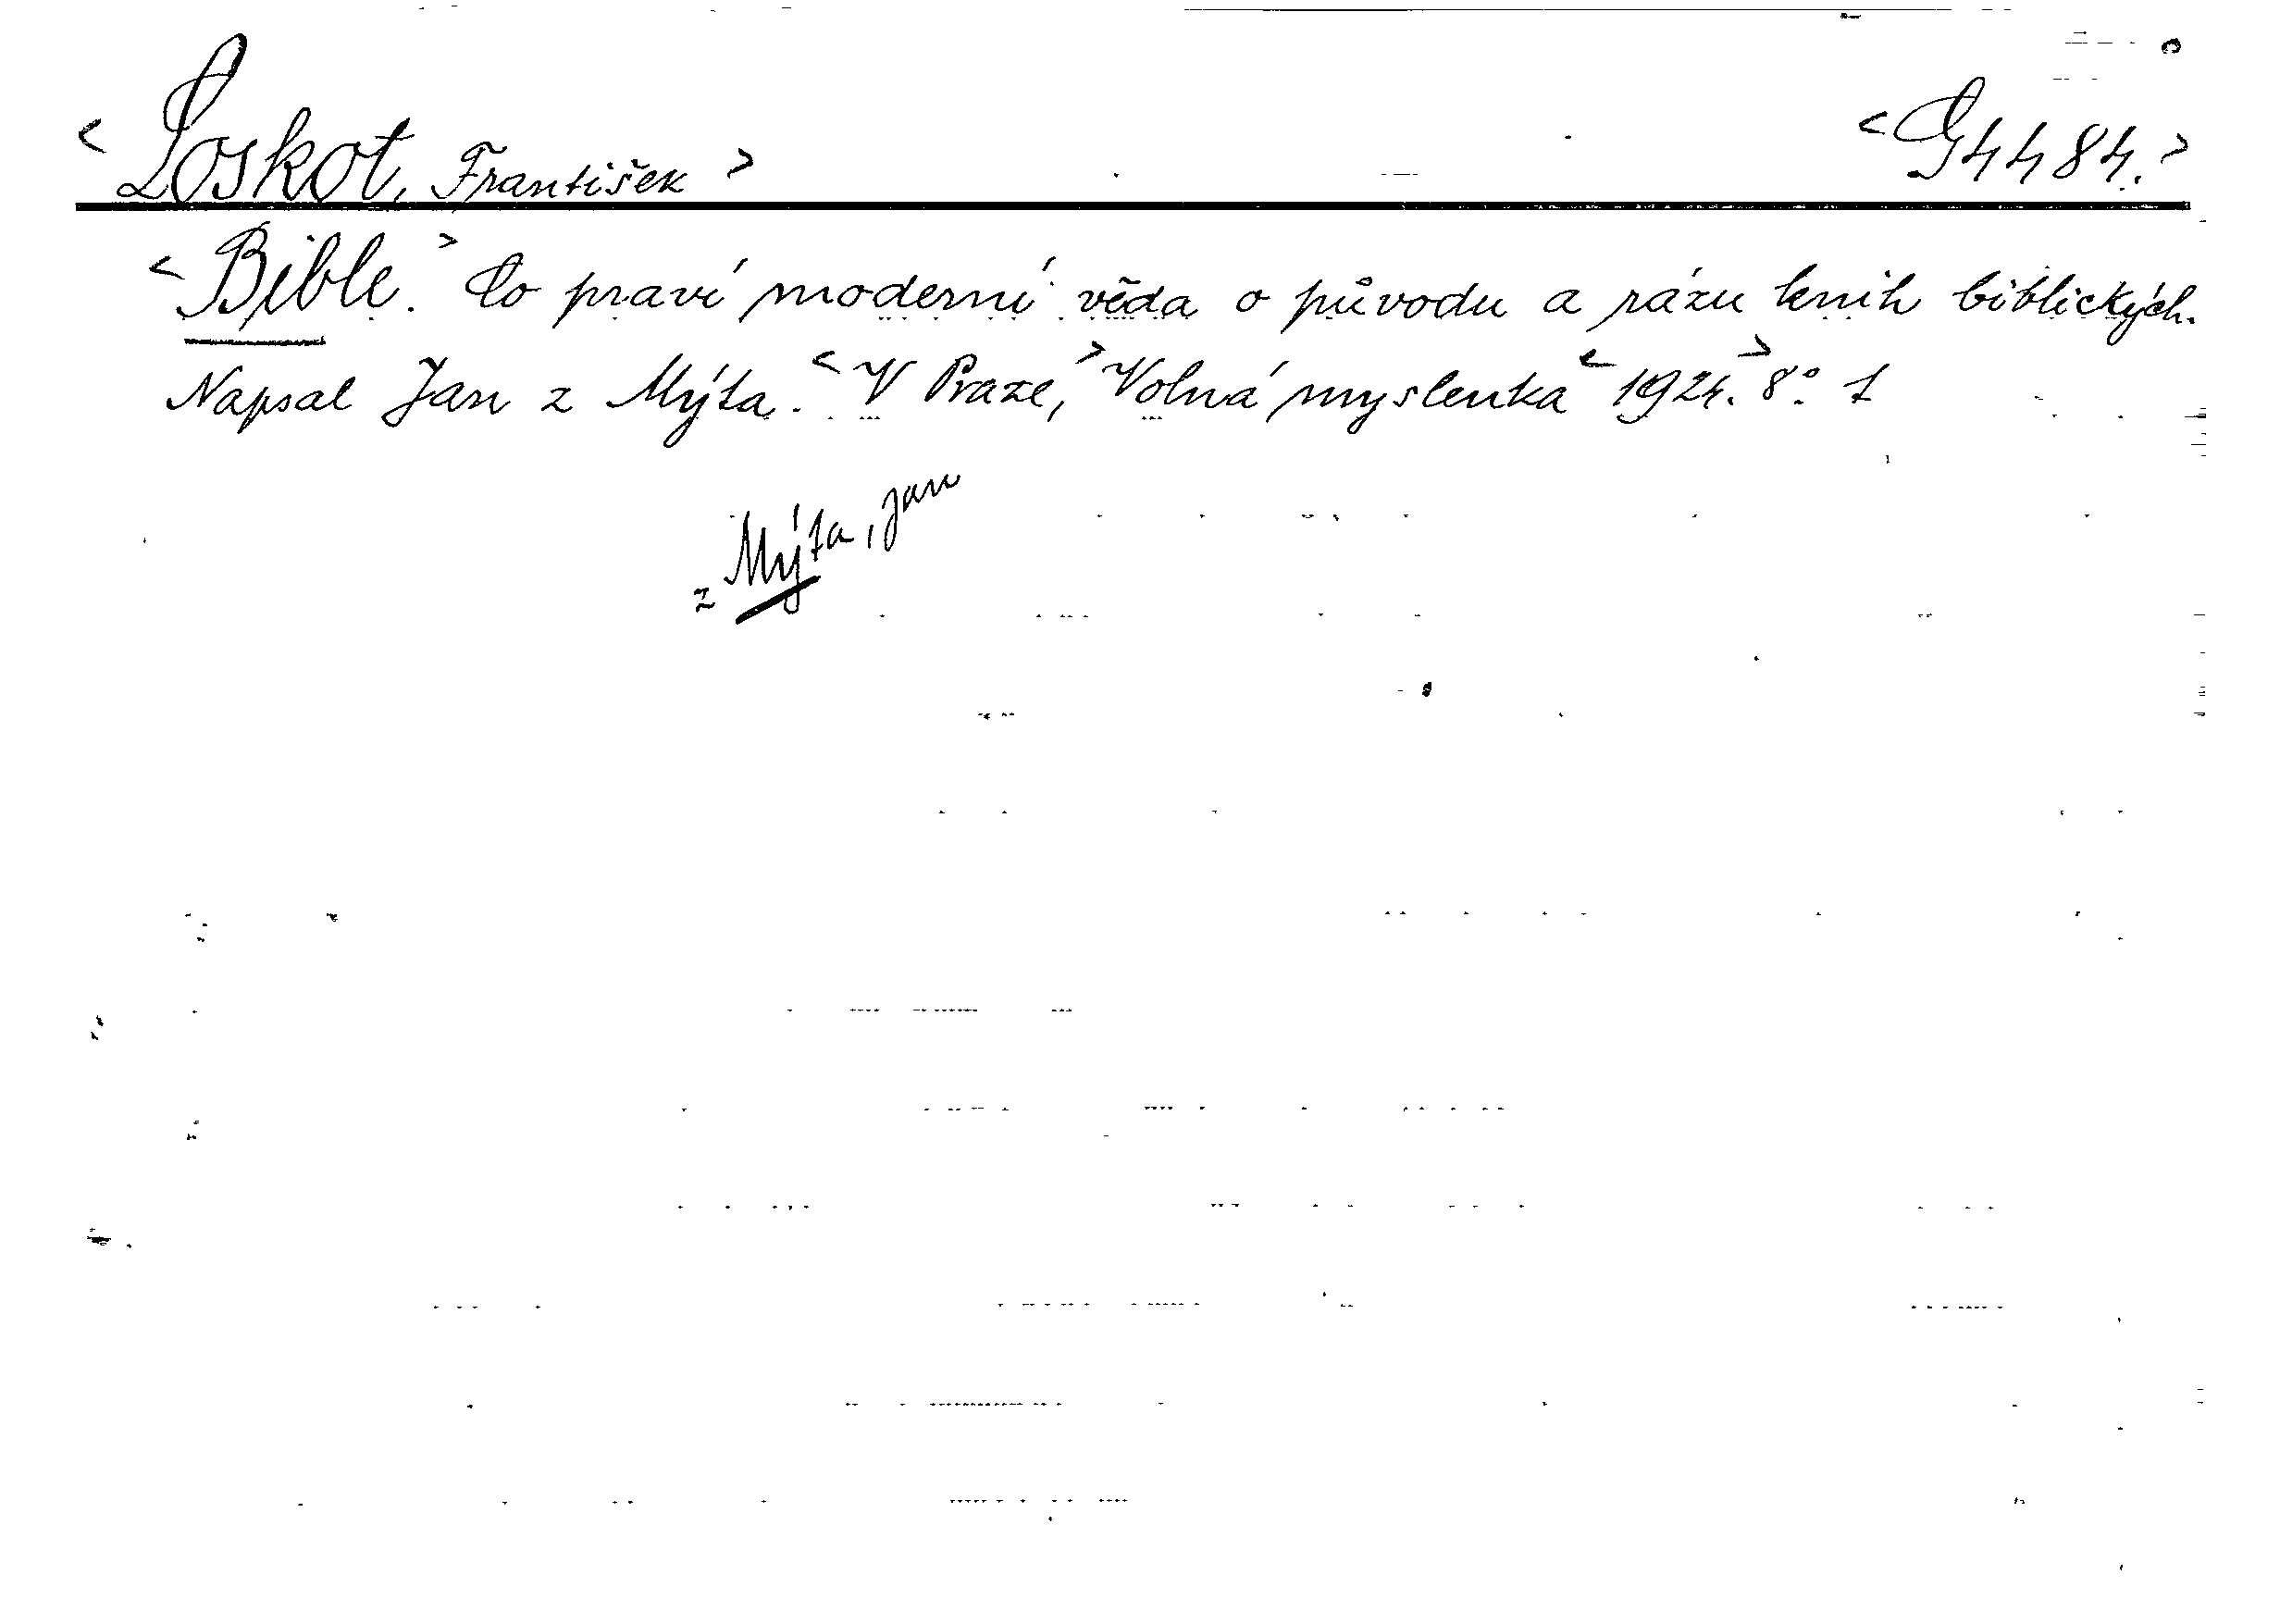 <Loskot, František> <G 4484.>
<Bible.> Co praví moderní věda o původu a rázu knih biblických.
Napsal Jan z Mýta. <V Praze,> Volná myslenka <1924.> 8°. 1
z Mýta, Jan